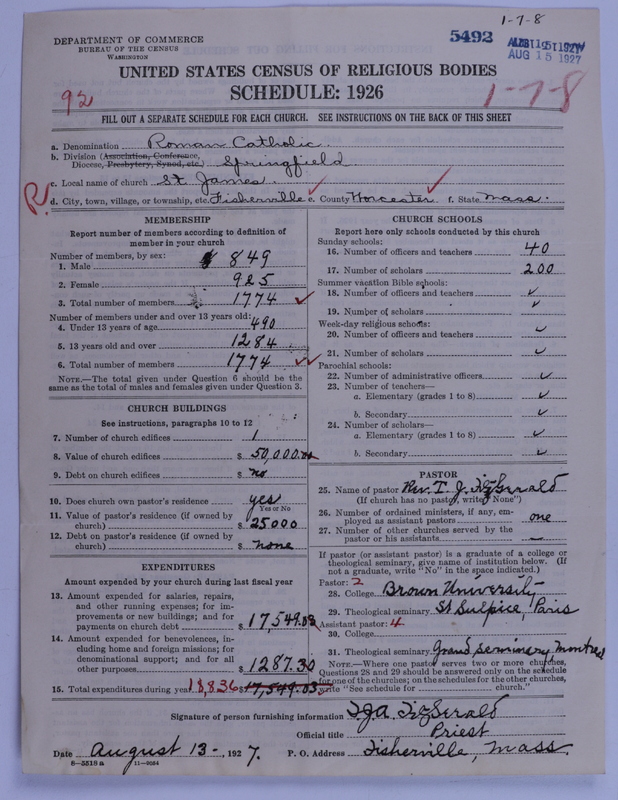 1-7-8
DEPARTMENT OF COMMERCE
BUREAU OF THE CENSUS
WASHINGTON
5492
AUG 15 1927
UNITED STATES CENSUS OF RELIGIOUS BODIES
SCHEDULE: 1926
92
1-7-8
FILL OUT A SEPARATE SCHEDULE FOR EACH CHURCH. SEE INSTRUCTIONS ON THE BACK OF THIS SHEET
a. Denomination Roman Catholic
b. Division (Association, Conference,
Diocese, Presbytery, Synod, etc.) Springfield
c. Local name of church St. James
R!
d. City, town, village, or township, etc. Fisherville e. County Worcester f. State Mass.
MEMBERSHIP
Report number of members according to definition of
member in your church
Number of members, by sex:
1. Male 849
2. Female 925
3. Total number of members 1774
Number of members under and over 13 years old:
4. Under 13 years of age 490
5. 13 years old and over 1284
6. Total number of members 1774
NOTE.—The total given under Question 6 should be the
same as the total of males and females given under Question 3.
CHURCH BUILDINGS
See instructions, paragraphs 10 to 12
7. Number of church edifices 1
8. Value of church edifices $ 50,000.00
9. Debt on church edifices $ no
10. Does church own pastor's residence yes
Yes or No
11. Value of pastor's residence (if owned by
church) $ 25000
12. Debt on pastor's residence (if owned by
church) $ none
EXPENDITURES
Amount expended by your church during last fiscal year
13. Amount expended for salaries, repairs,
and other running expenses; for im-
provements or new buildings; and for
payments on church debt $ 17,549.03
14. Amount expended for benevolences, in-
cluding home and foreign missions; for
denominational support; and for all
other purposes $ 1287.30
15. Total expenditures during year 18,836 $ 17,549.03
CHURCH SCHOOLS
Report here only schools conducted by this church
Sunday schools:
16. Number of officers and teachers 40
17. Number of scholars 200
Summer vacation Bible schools:
18. Number of officers and teachers
19. Number of scholars
Week-day religious schools:
20. Number of officers and teachers
21. Number of scholars
Parochial schools:
22. Number of administrative officers
23. Number of teachers—
a. Elementary (grades 1 to 8)
b. Secondary
24. Number of scholars—
a. Elementary (grades 1 to 8)
b. Secondary
PASTOR
25. Name of pastor Rev. T. J. FitzGerald
(If church has no pastor, write "None")
26. Number of ordained ministers, if any, em-
ployed as assistant pastors one
27. Number of other churches served by the
pastor or his assistants —
If pastor (or assistant pastor) is a graduate of a college or
theological seminary, give name of institution below. (If
not a graduate, write "No" in the space indicated.)
Pastor: 2
28. College Brown University
29. Theological seminary St Sulpice, Paris
Assistant pastor: 4
30. College
31. Theological seminary Grand Seminary Montreal
NOTE.—Where one pastor serves two or more churches,
Questions 28 and 29 should be answered only on the schedule
for one of the churches; on the schedules for the other churches,
write "See schedule for church."
Signature of person furnishing information FitzGerald
Official title Priest
Date August 13-, 1927. P. O. Address Fisherville, Mass.
8-5518 a 11-9054